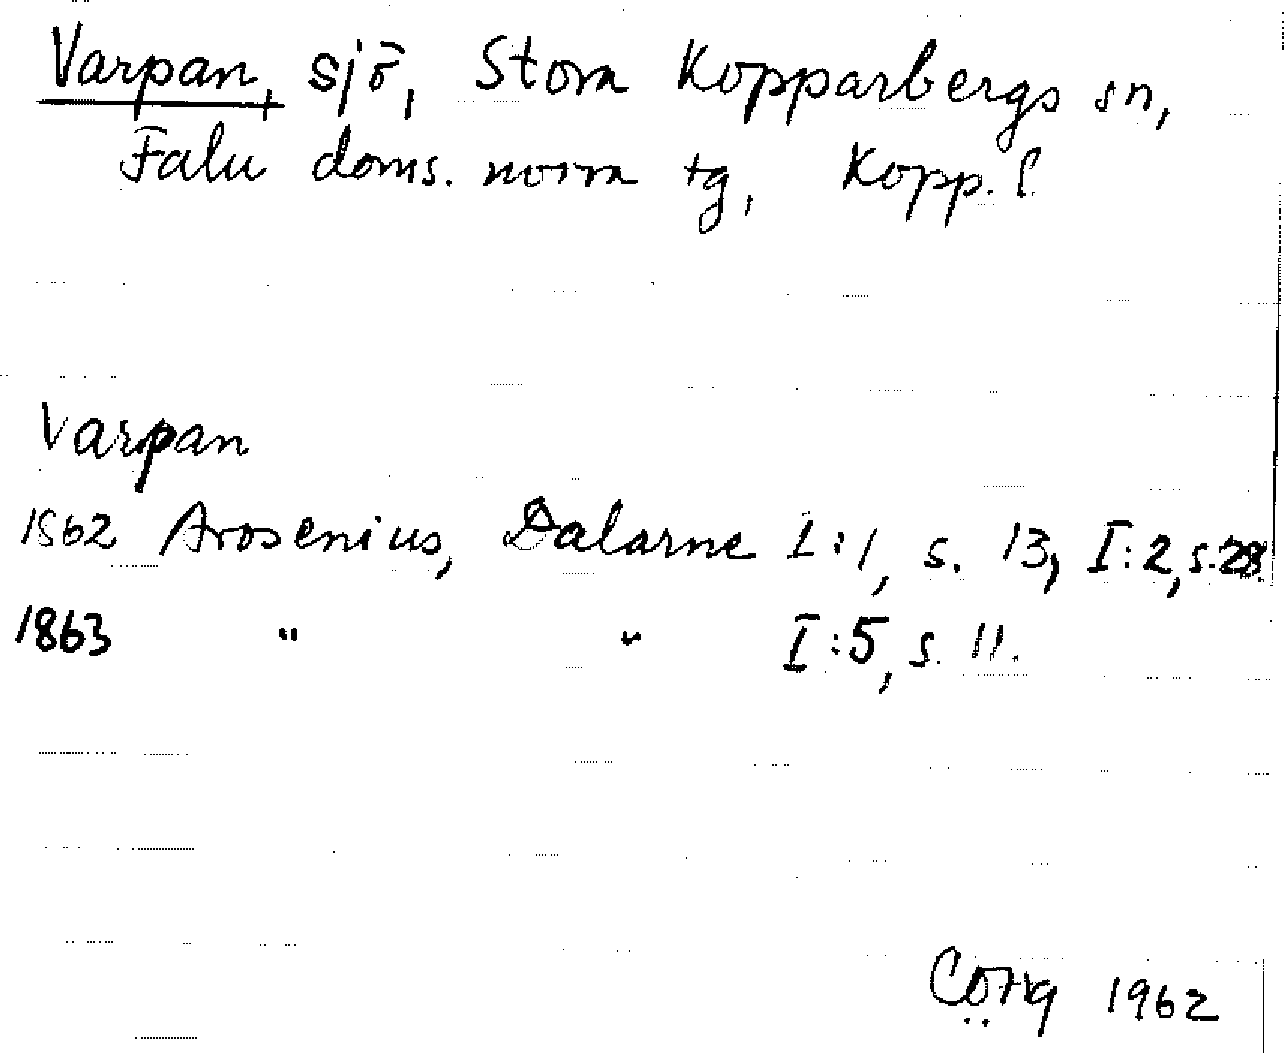 Varpan, sjö, Stora Kopparbergs sn,
Falu doms. norra tg, Kopp. l.
Varpan
1862 Arosenius, Dalarne I:1, s. 13, I:2, s. 28.
1863 " " I:5, s. 11.
1962